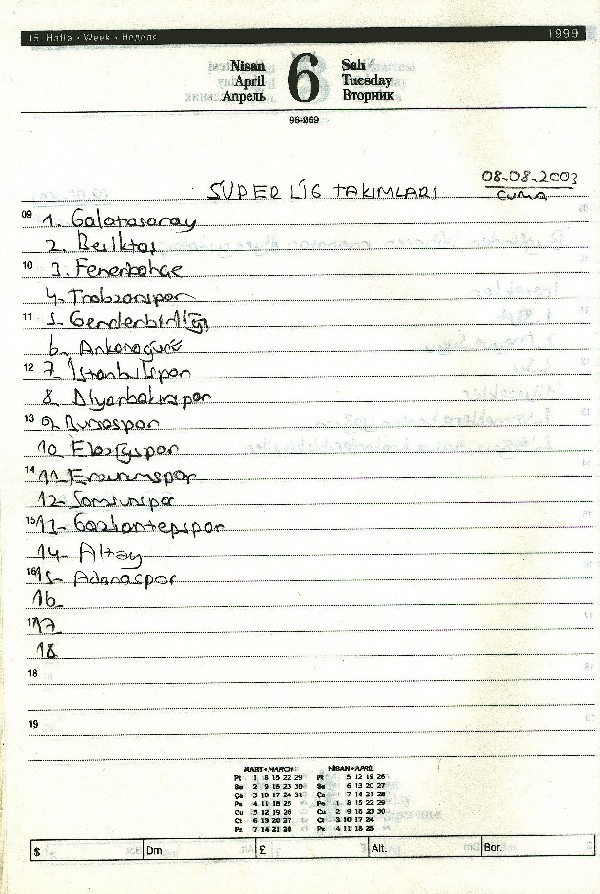 15. Hafta • Week • Неделя 1999
Nisan
April
Апрель
6
Salı
Tuesday
Вторник
96-269
08.08.2003
CUMA
SÜPER LİG TAKIMLARI
09 1. Galatasaray
2. Beşiktaş
10 3. Fenerbahçe
4. Trabzonspor
11 5. Gençlerbirliği
6. Ankaragücü
12 7. İstanbulspor
8. Diyarbakırspor
13 9. Bursaspor
10. Elazığspor
14 11. Erzurumspor
12. Samsunspor
15 13- Gaziantepspor
14- Altay
16 15- Adanaspor
16
17 17
18
18
19
MART • MARCH
Pt 1 8 15 22 29
Sa 2 9 16 23 30
Ça 3 10 17 24 31
Pe 4 11 18 25
Cu 5 12 19 26
Ct 6 13 20 27
Pz 7 14 21 28
NİSAN • APRIL
Pt 5 12 19 26
Sa 6 13 20 27
Ça 7 14 21 28
Pe 1 8 15 22 29
Cu 2 9 16 23 30
Ct 3 10 17 24
Pz 4 11 18 25
$ Dm £ Alt. Bor.